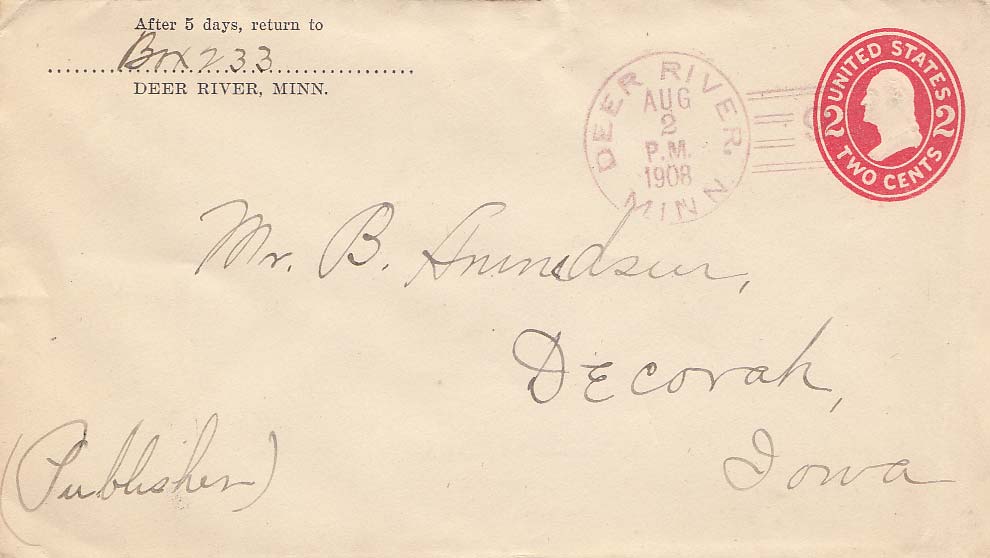 After 5 days, return to
Box 233
DEER RIVER, MINN.
DEER RIVER, MINN
AUG
2
P.M.
1908
UNITED STATES
2 2
TWO CENTS
Mr. B.
Decorah,
Iowa
(Publisher)